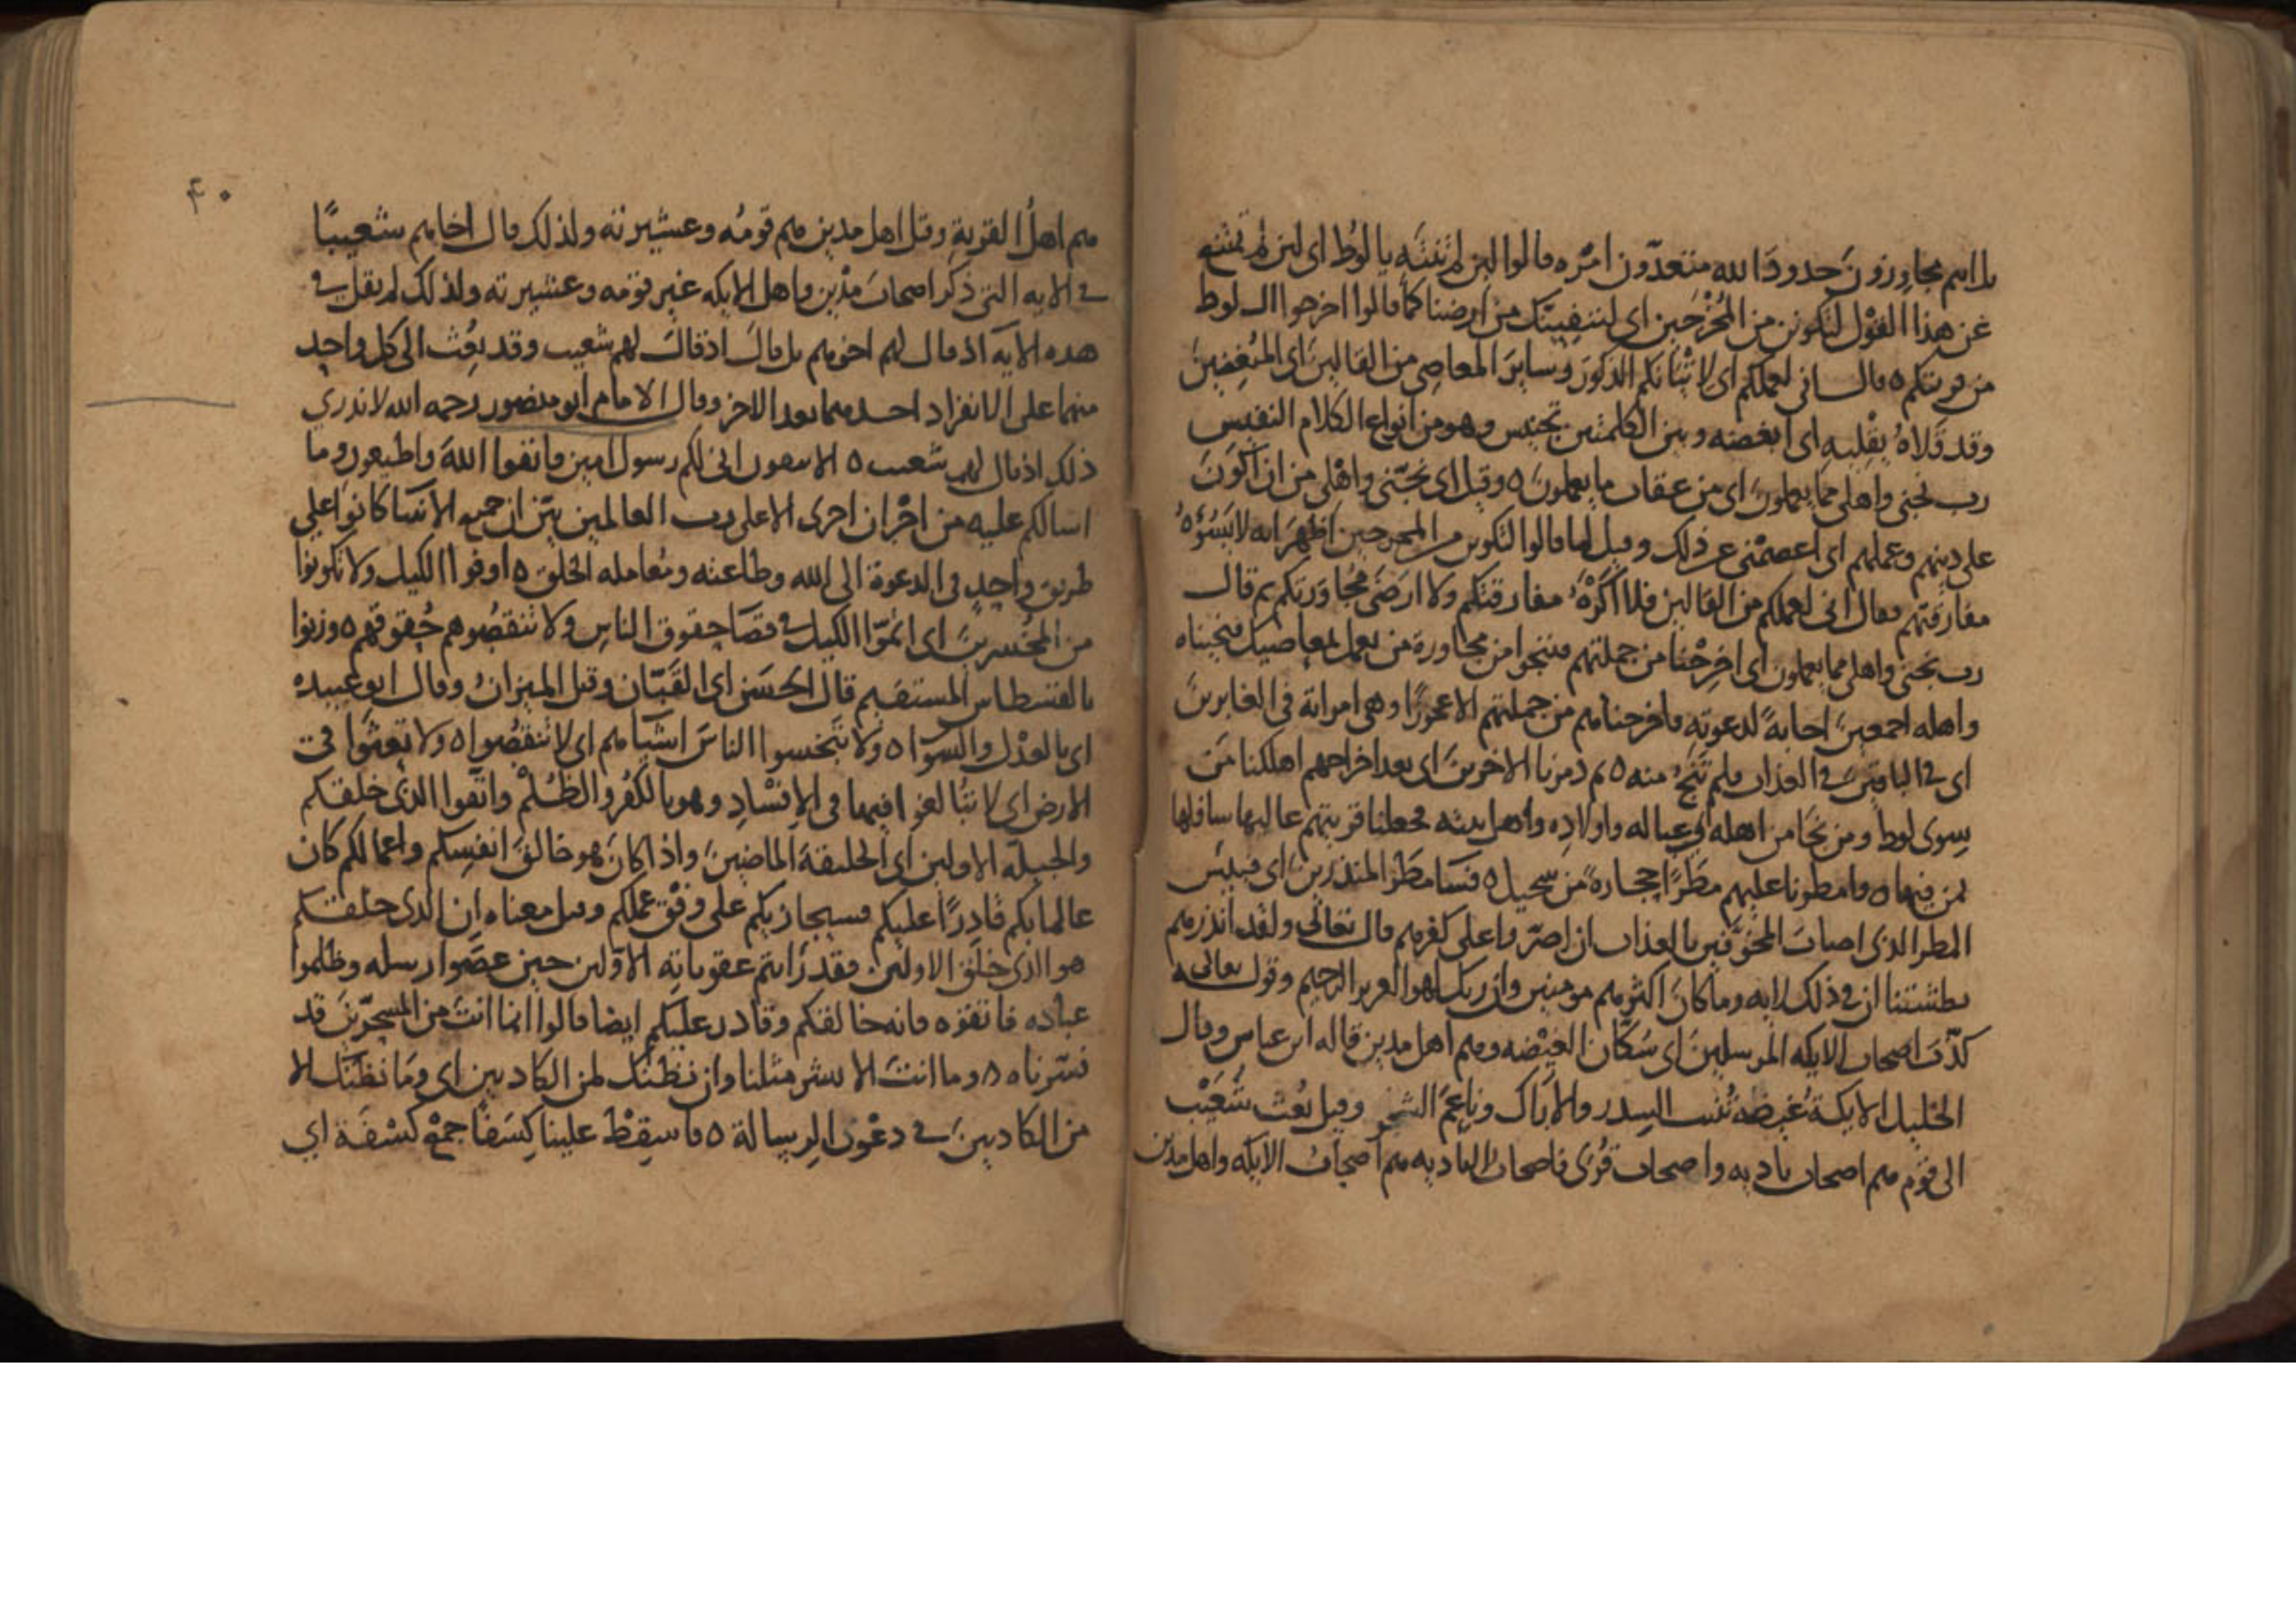 بل انتم مجاوزون حدود الله متعدّون امره قالوا لئن لم تنته يا لوط اى لئن لم تمتنع
عن هذا القول لتكونن من المُخْرَجين اى لننفينّك من ارضنا كما قالوا اخرجوا ال لوط
من قريتكم ٥ قال انى لعملكم اى لاتيانكم الذكور وساير المعاصى من القالين اى المبغضين
وقد قلاهُ يقليه اى ابغضه وبين الكلمتين تجنيس وهو من انواع الكلام النفيس
رب نجنى واهلى مما يعملون اى من عقاب ما يعملون ٥ وقيل اى نجّنى واهلى من ان اكون
على دينهم وعملهم اى اعصمنى عن ذلك وقيل لما قالوا لتكونن من المخرجين اظهر انه لا يسُوُه
مفارقتهم فقال انى لعملكم من القالين فلا اكره مفارقتكم ولا ارضى مجاورتكم ثم قال
رب نجنى واهلى مما يعملون اى اخرجنا من جملتهم فننجوا من مجاورة من يعمل بمعاصيك فنجيناه
واهله اجمعين اجابةً لدعوته فاخرجناهم من جملتهم الا عجوزًا وهى امراته فى الغابرين
اى فى الباقين فى العذاب فلم تنجُ منه ٥ ثم دمرنا الاخرين اى بعد اخراجهم اهلكنا من
سوى لوط ومن نجا من اهله اى عياله واولاده واهل بيته فجعلنا قريتهم عاليها سافلها
بمن فيها ٥ وامطرنا عليهم مطرًا حجارة من سجيل ٥ فسا مطر المنذرين اى فبيس
المطر الذى اصاب المخوّفين بالعذاب ان اصرّوا على كفرهم قال تعالى ولقد انذرهم
بطشتنا ان فى ذلك لايه وما كان اكثرهم مومنين وان ربك لهو العزيز الرحيم وقوله تعالى
كذّب اصحاب الايكه المرسلين اى سكّان الغيضه وهم اهل مدين قاله ابن عباس وقال
الخليل الايكة غيضه تُنبت السدر والاراك وناعم الشجر وقيل بُعث شُعَيْب
الى قوم هم اصحاب باديه واصحاب قُرى فاصحاب الباديه هم اصحاب الايكه واهل مدين
٤٠
هم اهلُ القرية وقيل اهل مدين هم قومُه وعشيرته ولذلك قال اخاهم شعيبًا
فى الايه التى ذكر اصحاب مدْين واهل الايكه غير قومه وعشيرته ولذلك لم يقل فى
هذه الايه اذ قال لهم اخوهم بل قال اذ قال لهم شعيب وقد بُعث الى كل واحد
منهما على الانفراد احدهما بعد الاخر وقال الامام ابو منصور رحمه الله لا ندرى
ذلك اذ قال لهم شعيب ٥ الا تتقون انى لكم رسول امين فاتقوا الله واطيعون وما
اسالكم عليه من اجْر ان اجرى الا على رب العالمين بيّن ان جميع الانبيا كانوا على
طريق واحد فى الدعوة الى الله وطاعته ومُعامله الخلق ٥ اوفوا الكيل ولا تكونوا
من المُخسرين اى اتمّوا الكيل فى قضا حقوق الناس ولا تنقصُوهم حُقوقهم ٥ وزنوا
بالقسطاس المستقيم قال الحسن اى القبّان وقيل الميزان وقال ابو عبيده
اى بالعدْل والسّوا ٥ ولا تبخسوا الناس اشياهم اى لا تنقصُوا ٥ ولا تعثوا فى
الارض اى لا تبالغوا فيها فى الافسادِ وهو بالكفر والظُلم واتقوا الذى خلقكم
والجبلة الاولين اى الخليقة الماضين واذا كان هو خالق انفسكم واعمالكم كان
عالما بكم قادرًا عليكم فسيجازيكم على وفْق عملكم وقيل معناه ان الذى خلقكم
هو الذى خلق الاولين فقد رايتم عقوباته الاوّلين حين عصَوا رسله وظلموا
عباده فاتقوه فانه خالقكم وقادر عليكم ايضا قالوا انما انت من المسحّرين قد
فسّرناه ٥ وما انت الا بشر مثلنا وان نظنّك لمن الكاذبين اى وما نظنّك الا
من الكاذبين فى دعْوى الرسالة ٥ فاسقِطْ علينا كِسَفًا جمْع كسْفَة اى